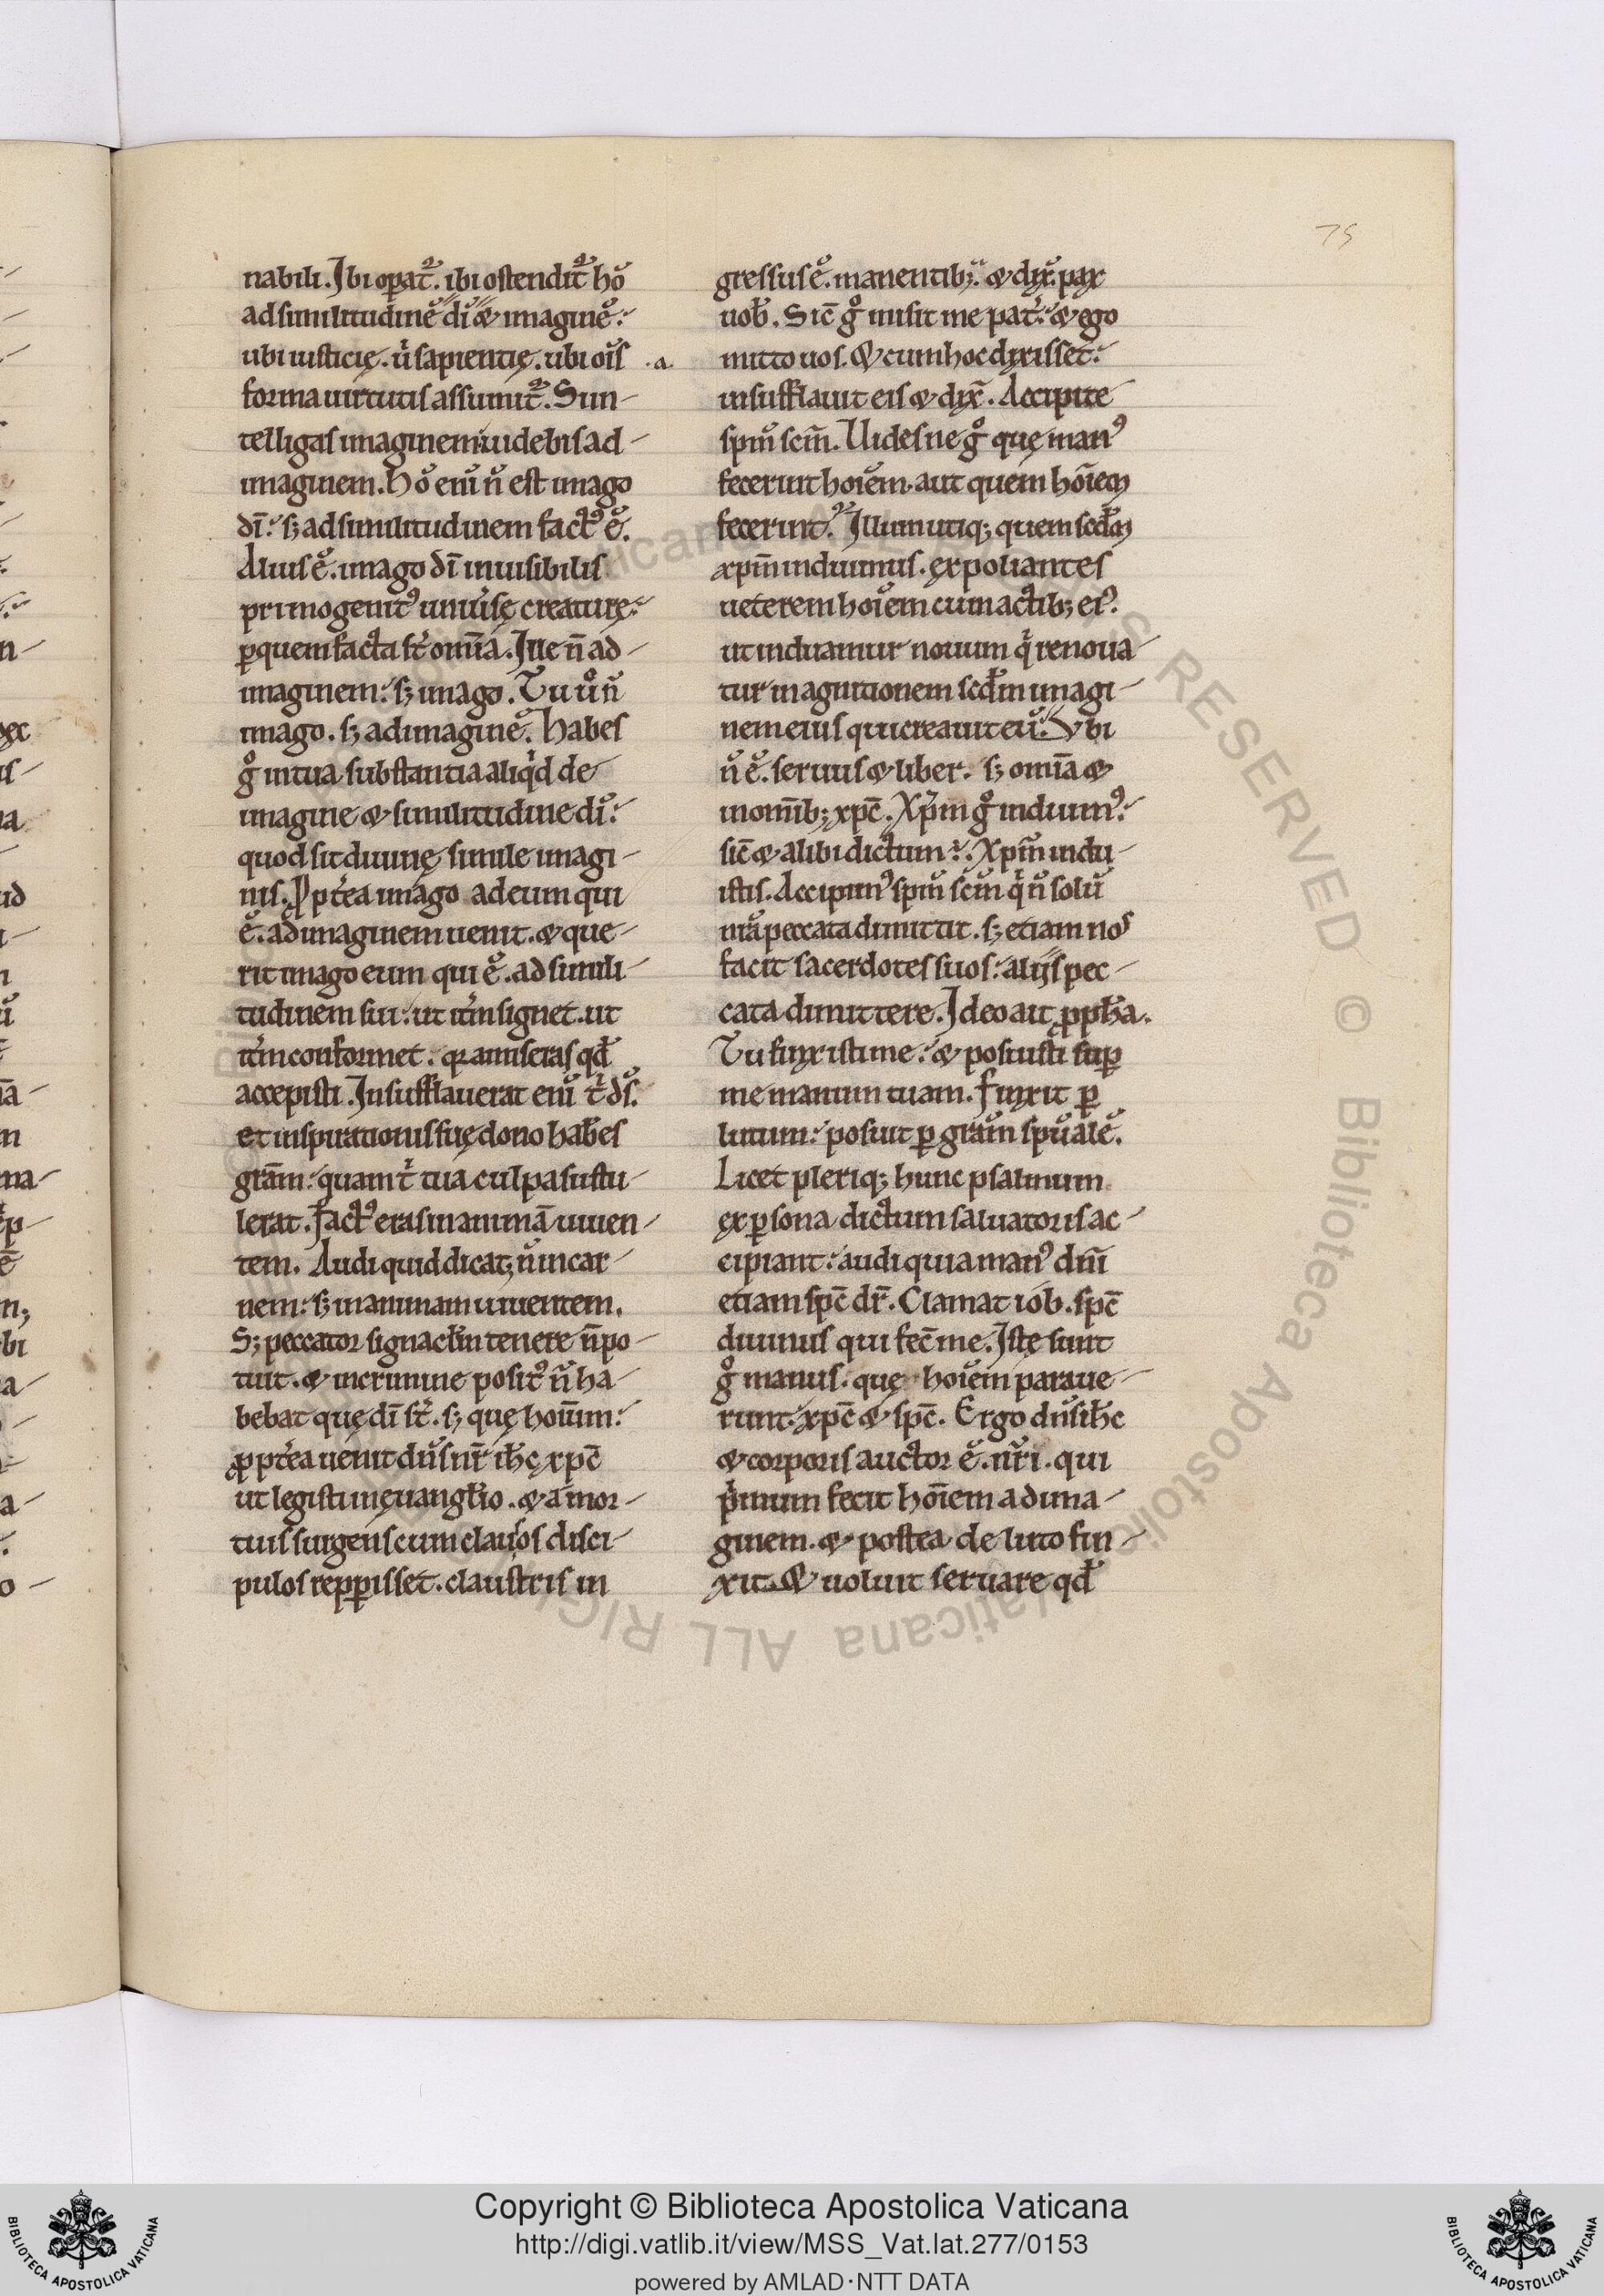 75
nabili. Ibi opat᷑. ibi ostendit᷑ hō
ad similitudinē dī & imaginē.
ubi iusticię. ů sapientię. ubi oīs
forma uirtutis assumit᷑. Si in-
telligas imaginem uidebis ad
imaginem. Hō enī n̄ est imago
dī. sꝫ ad similitudinem factꝰ ē.
Alius ē. imago dī inuisibilis
primogenitꝰ uniůsę creaturę.
ꝑ quem facta st̄ om̄ia. Ille n̄ ad
imaginem. sꝫ imago. Tu ů n̄
imago. sꝫ ad imaginē. Habes
gͦ in tua substantia aliqͥd de
imagine & similitudine dī.
quod sit diuinę simile imagi-
nis. Ꝓpt̄ea imago ad eum qui
ē. ad imaginem uenit. & que-
rit imago eum qui ē. ad simili-
tudinem sui. ut it̄m signet. ut
it̄m conformet. qꝛ amiseras qd̄
accepisti. Insufflauerat enī tͥ ds̄.
et inspirationis suę dono habes
grām. quam tͥ tua culpa sustu-
lerat. Factꝰ eras in animā uiuen-
tem. Audi quid dicat; n̄ in car-
nem. sꝫ in animam uiuentem.
Sꝫ peccator signacl̄m tenere n̄ po-
tuit. & in crimine positꝰ n̄ ha-
bebat quę dī st̄. sꝫ quę hoīum.
ꝓpt̄ea uenit dn̄s nr̄ ih̄c xp̄c
ut legisti in ęuangl̄io. & a mor-
tuis surgens cum clausos disci-
pulos repꝑisset. claustris in
.a.
gressus ē. manentibꝫ. & dix̄. pax
uob̄. Sic̄ gͦ misit me pat̄. & ego
mitto uos. & cum hoc dixisset.
insufflauit eis & dix̄. Accipite
sp̄m sc̄m. Uidesne gͦ quę manꝰ
fecerint hoīem. aut quem hoīem
fecerint. Illum utiqꝫ quem scd̄m
xp̄m induimus. expoliantes
ueterem hoīem cum actibꝫ eiꝰ.
ut induamur nouum qͥ renoua-
tur in agnitionem scd̄m imagi-
nem eius qui creauit eū. Ubi
n̄ ē. seruus & liber. sꝫ om̄ia &
in om̄ibꝫ xp̄c. Xp̄m gͦ induimꝰ.
sic̄ & alibi dictum ē. Xp̄m indu-
istis. Accipimꝰ sp̄m sc̄m qͥ n̄ solū
nrā peccata dimittit. sꝫ etiam nos
facit sacerdotes suos. alijs pec-
cata dimittere. Ideo ait ꝓph̄a.
Tu finxisti me. & posuisti suꝑ
me manum tuam. Finxit ꝑ
lutum. posuit ꝑ grām sp̄ualē.
Licet pleriqꝫ hunc psalmum
ex ꝑsona dictum saluatoris ac-
cipiant. audi quia manꝰ dn̄i
etiam sp̄c dr̄. Clamat iob. sp̄c
diuinus qui fec̄ me. Istę sunt
gͦ manus. quę hoīem paraue-
runt. xp̄c & sp̄c. Ergo dn̄s ih̄c
& corporis auctor ē. nr̄i. qui
pͥmum fecit hoīem ad ima-
ginem. & postea de luto fin-
xit. & uoluit seruare qd̄
Copyright © Biblioteca Apostolica Vaticana
http://digi.vatlib.it/view/MSS_Vat.lat.277/0153
powered by AMLAD·NTT DATA